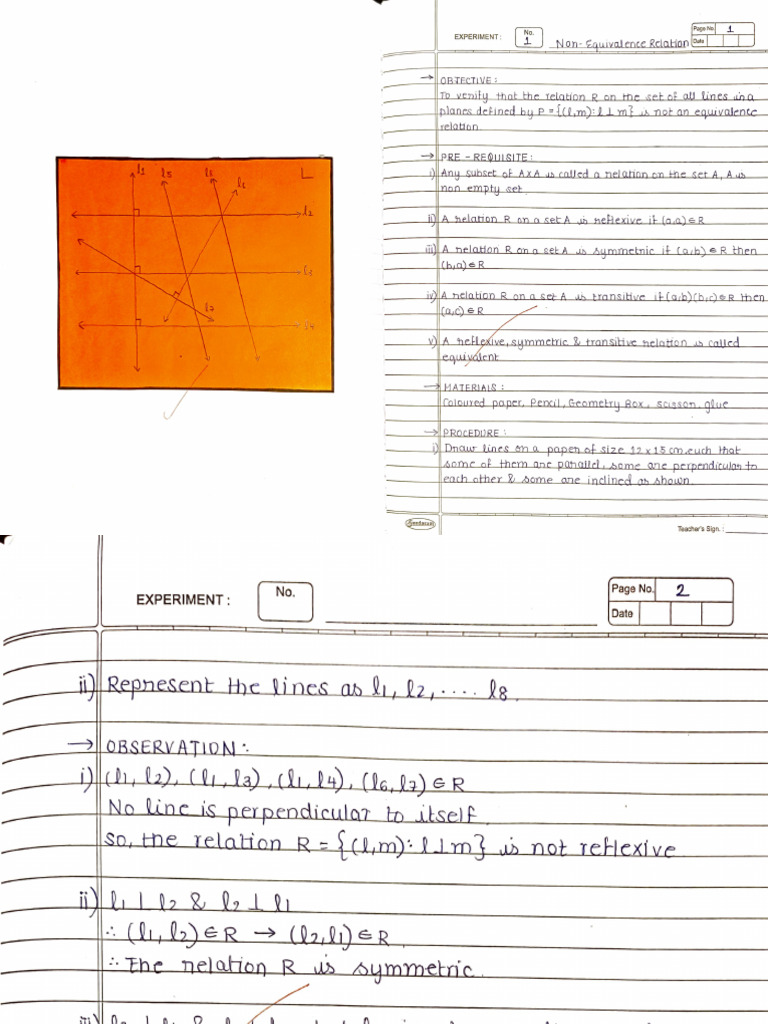 l1
l5
l8
l6
l2
l3
l7
l4
EXPERIMENT :
No.
1
Non-Equivalence Relation
Page No.
1
Date
→ OBJECTIVE :
To verify that the relation R on the set of all lines in a
planes defined by P = {(l,m): l ⊥ m} is not an equivalence
relation.
→ PRE - REQUISITE :
i) Any subset of A×A is called a relation on the set A, A is
non empty set.
ii) A relation R on a set A is reflexive if (a,a) ∈ R
iii) A relation R on a set A is symmetric if (a,b) ∈ R then
(b,a) ∈ R
iv) A relation R on a set A is transitive if (a,b)(b,c) ∈ R then
(a,c) ∈ R
v) A reflexive, symmetric & transitive relation is called
equivalent
→ MATERIALS :
Coloured paper, Pencil, Geometry Box, scissor, glue
→ PROCEDURE :
i) Draw lines on a paper of size 12 x 15 cm. such that
some of them are parallel, some are perpendicular to
each other & some are inclined as shown.
Teacher's Sign. :
EXPERIMENT :
No.
Page No.
2
Date
ii) Represent the lines as l1, l2, .... l8.
→ OBSERVATION :
i) (l1, l2), (l1, l3), (l1, l4), (l6, l7) ∈ R
No line is perpendicular to itself.
So, the relation R = {(l,m): l ⊥ m} is not reflexive
ii) l1 ⊥ l2 & l2 ⊥ l1
∴ (l1, l2) ∈ R → (l2, l1) ∈ R
∴ The relation R is symmetric.